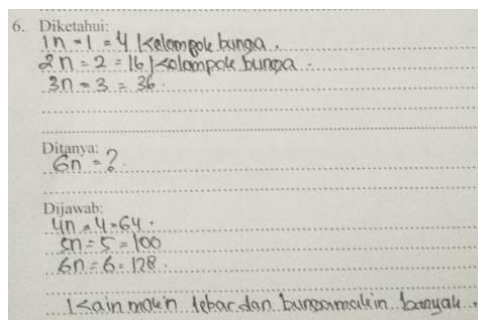 6. Diketahui:
1n = 1 = 4 kelompok bunga.
2n = 2 = 16 kelompok bunga.
3n = 3 = 36.
Ditanya:
6n = ?
Dijawab:
4n = 4 = 64.
5n = 5 = 100
6n = 6 = 128.
Kain makin lebar dan bunga makin banyak.